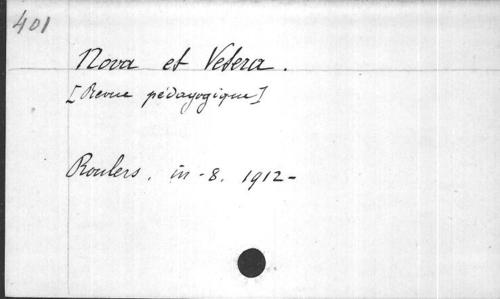 401
Nova et Vetera.
[Revue pédagogique]
Roulers, in-8. 1912-